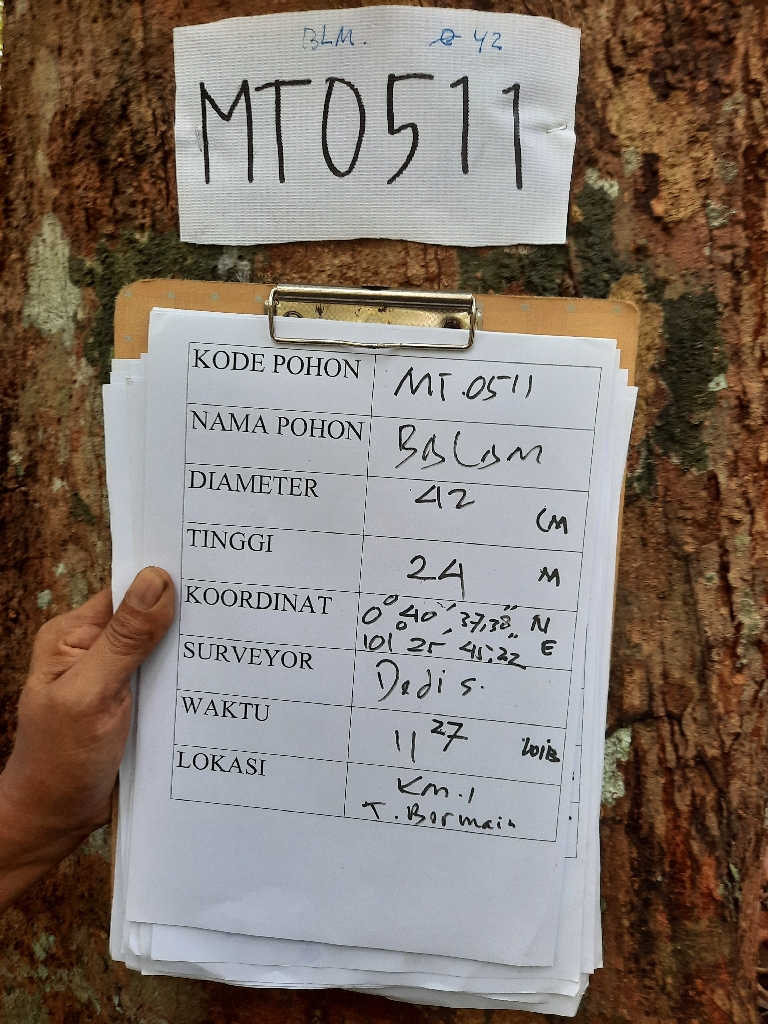 BLM. ⌀ 42
MT0511
KODE POHON MT.0511
NAMA POHON BALAM
DIAMETER 42 CM
TINGGI 24 M
KOORDINAT 0° 40' 37,38" N
101° 25' 45,22" E
SURVEYOR Dedi S.
WAKTU 11 27 WIB
LOKASI KM.1
T. Bermain